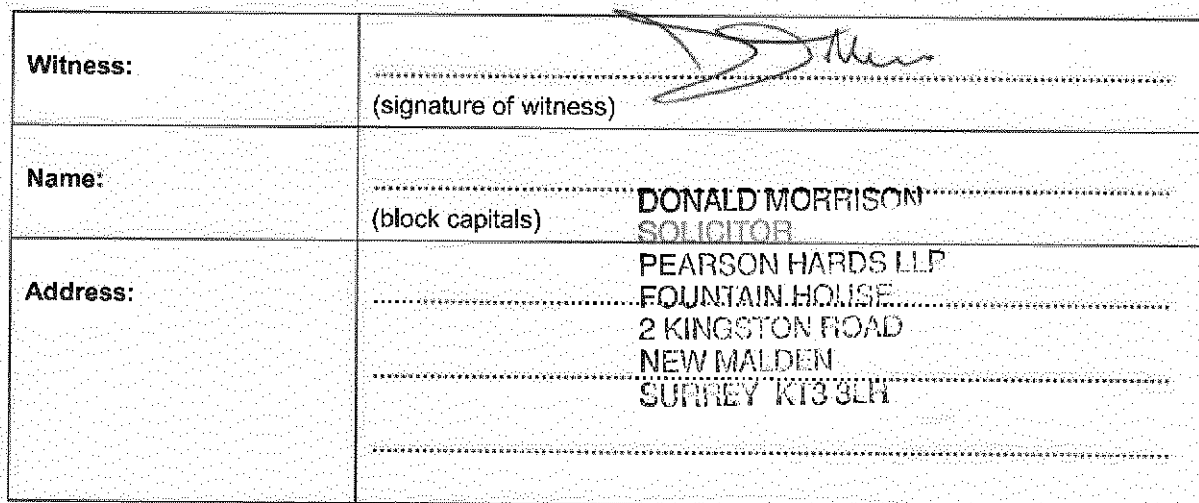 Witness:
(signature of witness)
Name:
(block capitals)
DONALD MORRISON
SOLICITOR
Address:
PEARSON HARDS LLP
FOUNTAIN HOUSE
2 KINGSTON ROAD
NEW MALDEN
SURREY KT3 3LH